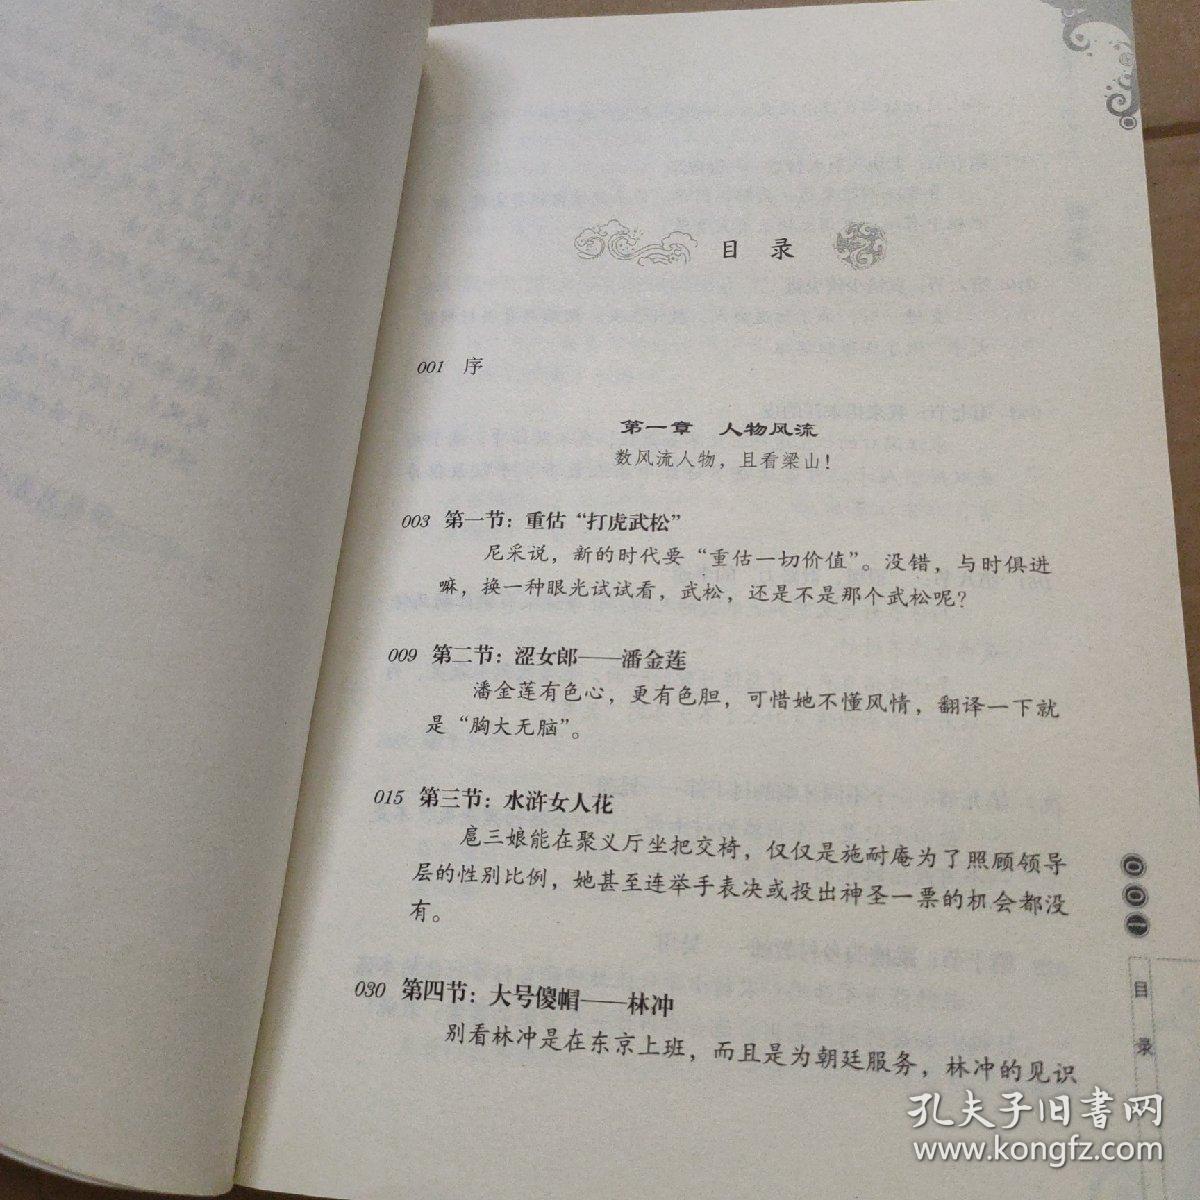 目 录
001 序
第一章 人物风流
数风流人物，且看梁山！
003 第一节：重估“打虎武松”
尼采说，新的时代要“重估一切价值”。没错，与时俱进
嘛，换一种眼光试试看，武松，还是不是那个武松呢？
009 第二节：涩女郎——潘金莲
潘金莲有色心，更有色胆，可惜她不懂风情，翻译一下就
是“胸大无脑”。
015 第三节：水浒女人花
扈三娘能在聚义厅坐把交椅，仅仅是施耐庵为了照顾领导
层的性别比例，她甚至连举手表决或投出神圣一票的机会都没
有。
030 第四节：大号傻帽——林冲
别看林冲是在东京上班，而且是为朝廷服务，林冲的见识
001
目录
孔夫子旧书网
www.kongfz.com